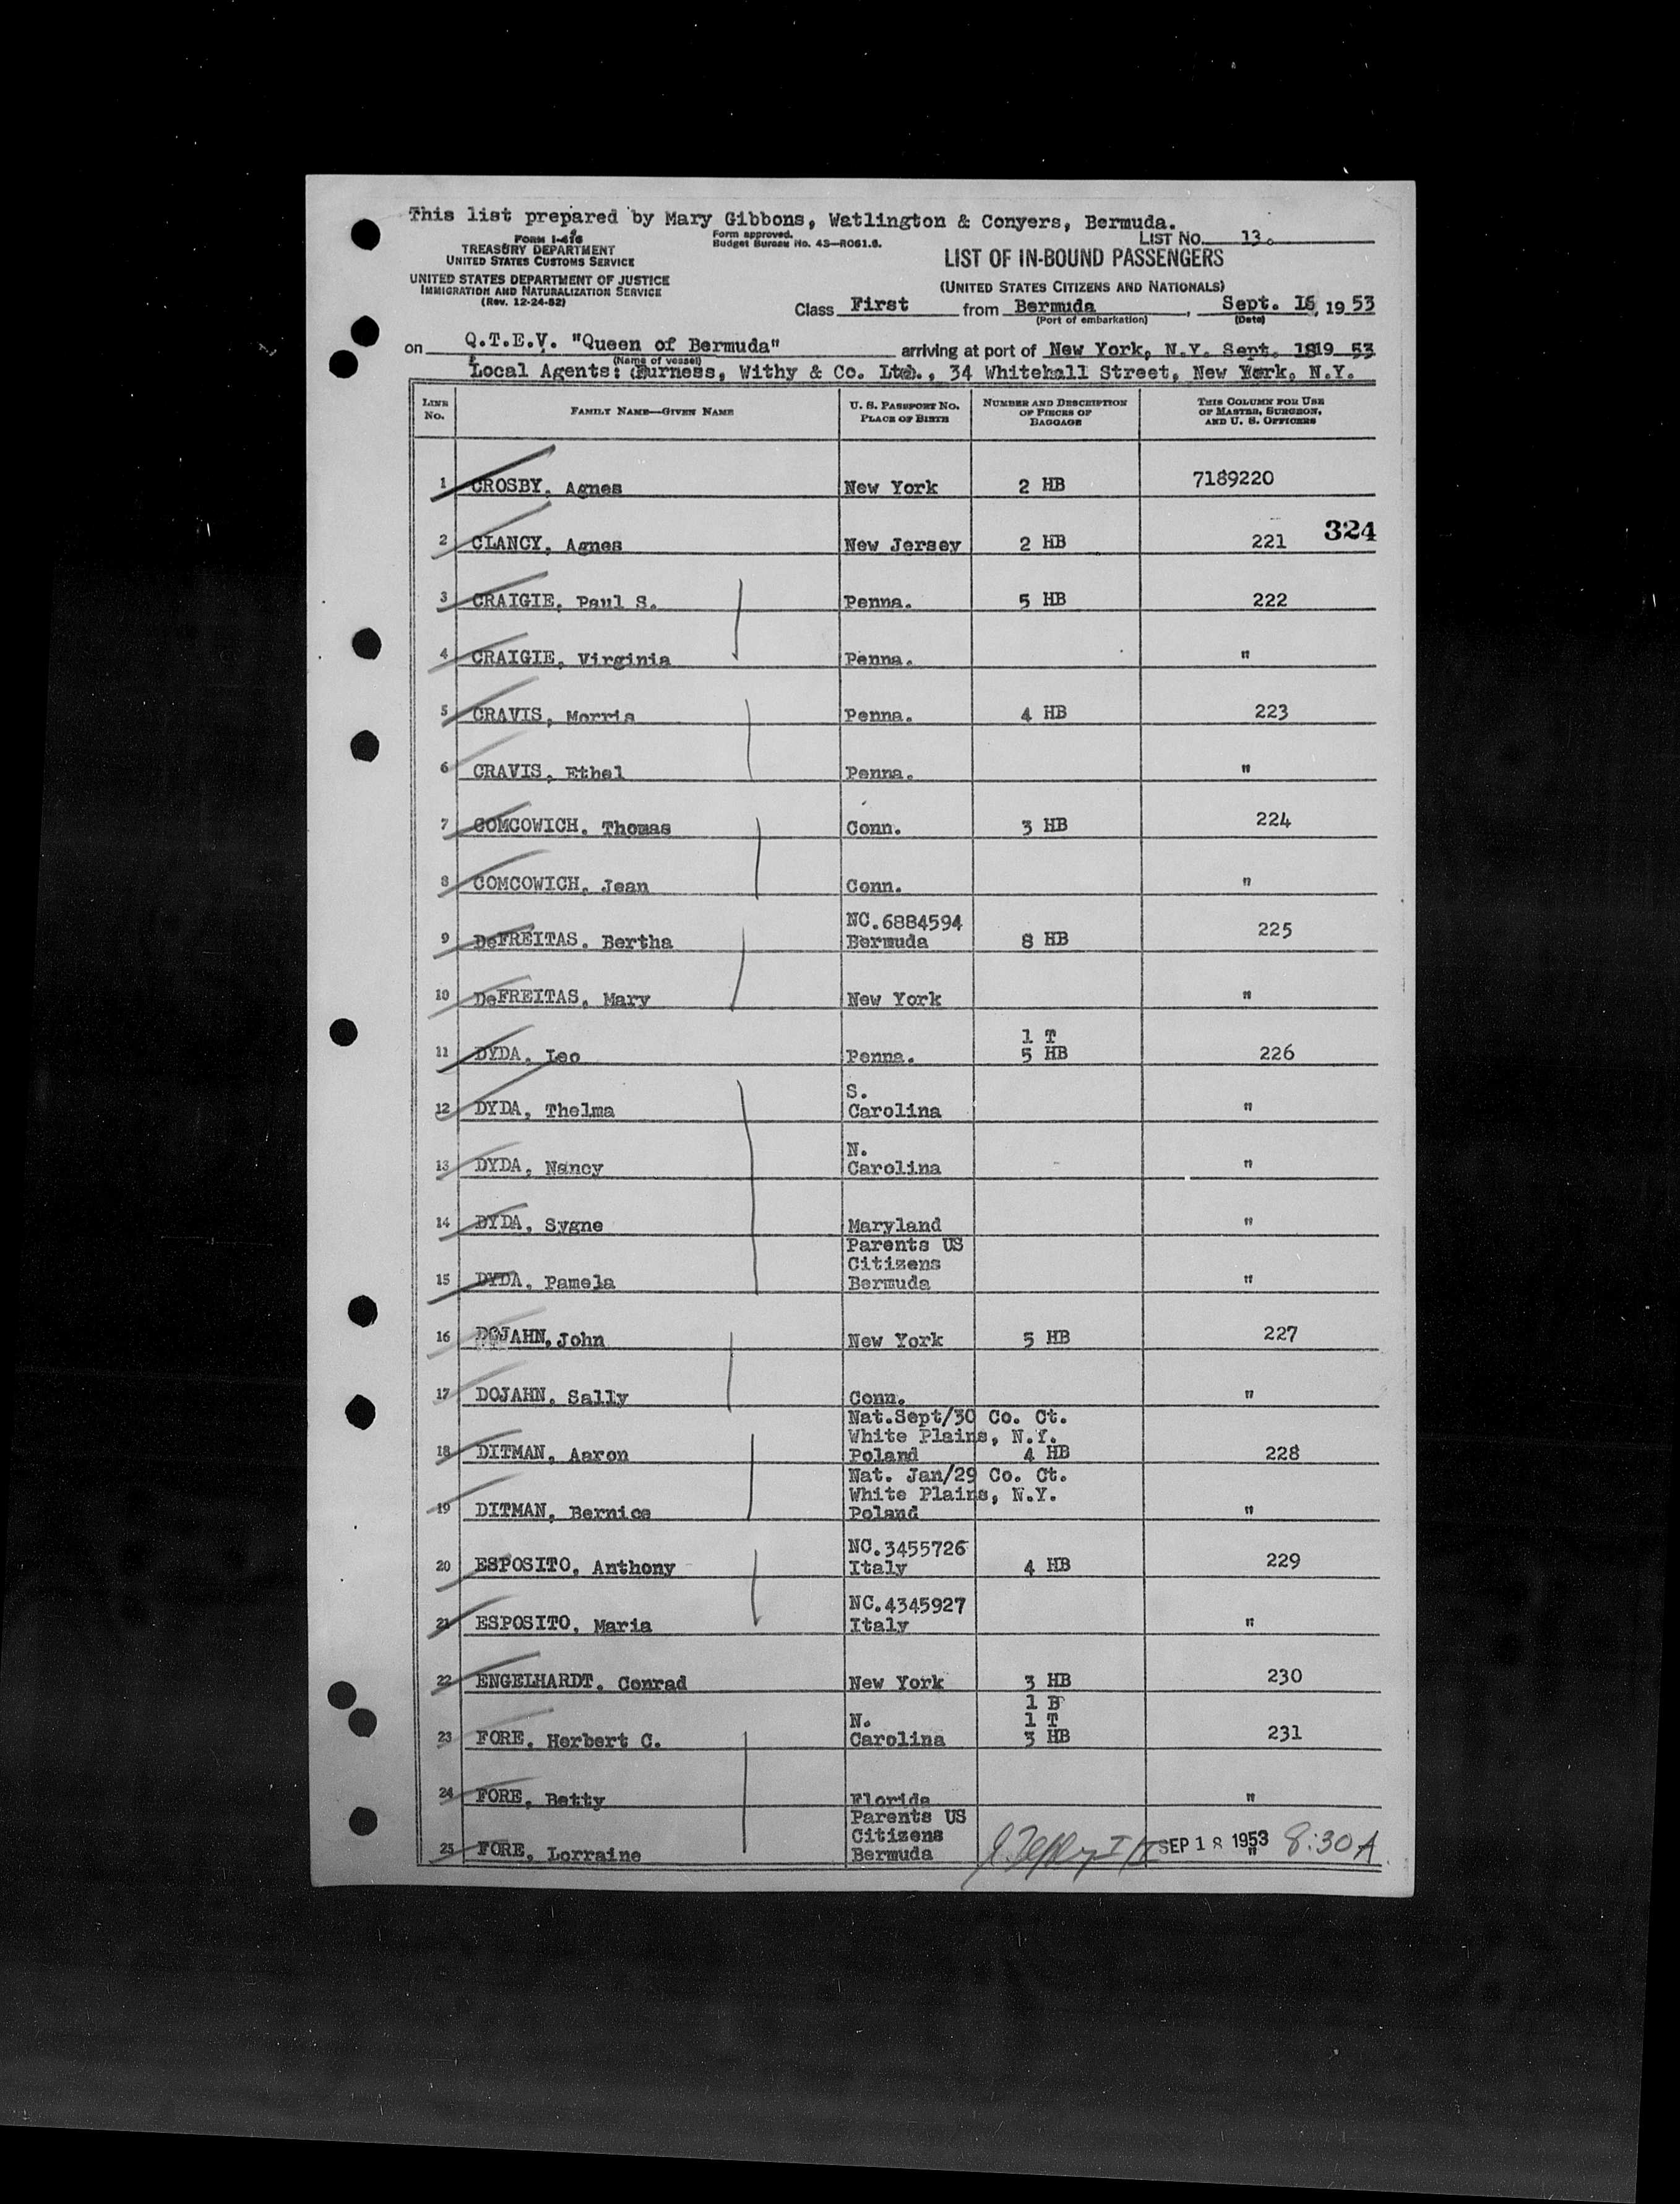 This list prepared by Mary Gibbons, Watlington & Conyers, Bermuda.
FORM I-416
TREASURY DEPARTMENT
UNITED STATES CUSTOMS SERVICE
UNITED STATES DEPARTMENT OF JUSTICE
IMMIGRATION AND NATURALIZATION SERVICE
(Rev. 12-24-52)
Form approved.
Budget Bureau No. 43—R061.6.
LIST NO. 13.
LIST OF IN-BOUND PASSENGERS
(UNITED STATES CITIZENS AND NATIONALS)
Class First from Bermuda, Sept. 16, 1953
(Port of embarkation) (Date)
on Q.T.E.V. "Queen of Bermuda" arriving at port of New York, N.Y. Sept. 18 19 53
(Name of vessel)
Local Agents: Furness, Withy & Co. Ltd., 34 Whitehall Street, New York, N.Y.
LINE No. FAMILY NAME—GIVEN NAME U. S. PASSPORT NO. PLACE OF BIRTH NUMBER AND DESCRIPTION OF PIECES OF BAGGAGE THIS COLUMN FOR USE OF MASTER, SURGEON, AND U. S. OFFICERS
1 CROSBY, Agnes New York 2 HB 7189220
324
2 CLANCY, Agnes New Jersey 2 HB 221
3 CRAIGIE, Paul S. Penna. 5 HB 222
4 CRAIGIE, Virginia Penna. "
5 CRAVIS, Morris Penna. 4 HB 223
6 CRAVIS, Ethel Penna. "
7 COMCOWICH, Thomas Conn. 3 HB 224
8 COMCOWICH, Jean Conn. "
NC.6884594
9 DeFREITAS, Bertha Bermuda 8 HB 225
10 DeFREITAS, Mary New York "
1 T
11 DYDA, Leo Penna. 5 HB 226
S.
12 DYDA, Thelma Carolina "
N.
13 DYDA, Nancy Carolina "
14 DYDA, Sygne Maryland "
Parents US
Citizens
15 DYDA, Pamela Bermuda "
16 DOJAHN, John New York 5 HB 227
17 DOJAHN, Sally Conn. "
Nat.Sept/30 Co. Ct.
White Plains, N.Y.
18 DITMAN, Aaron Poland 4 HB 228
Nat. Jan/29 Co. Ct.
White Plains, N.Y.
19 DITMAN, Bernice Poland "
NC.3455726
20 ESPOSITO, Anthony Italy 4 HB 229
NC.4345927
21 ESPOSITO, Maria Italy "
22 ENGELHARDT, Conrad New York 3 HB 230
1 B
N. 1 T
23 FORE, Herbert C. Carolina 3 HB 231
24 FORE, Betty Florida "
Parents US
Citizens
25 FORE, Lorraine Bermuda "
SEP 18 1953 8:30 A